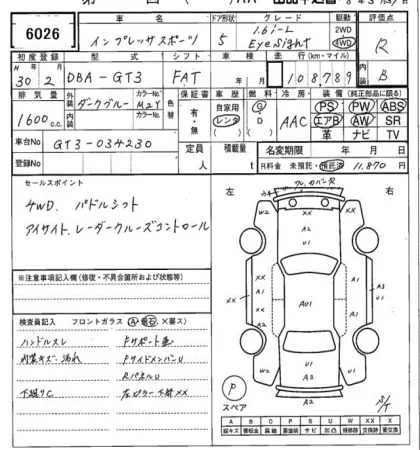 6026
車名 ドア形状 グレード 駆動 評価点
インプレッサスポーツ 5 1.6i-L EyeSight 2WD 4WD R
初度登録 型式 シフト 車検 走行(km・マイル) B
H 30年 2月 DBA-GT3 FAT 年 月 108,789
排気量 外装 カラーNo. 色替 保証書 車歴 燃料 冷房 装備 (純正部品に限る)
1600c.c. ダークブルー M2Y 有・無 自家用 レンタ G D AAC PS PW ABS
内装 カラーNo. エアB AW SR
革 ナビ TV
車台No GT3-034230 定員 人 積載量 t 名変期限 年 月 日
登録No R料金 未預託・預託済 11,870
セールスポイント
4WD. パドルシフト
アイサイト、レーダークルーズコントロール
※注意事項記入欄(修復・不具合箇所および状態等)
検査員記入 フロントガラス(A・飛石・X要ス)
ハンドルスレ Fサポート歪
内装キズ汚れ FサイドメンバーU
RパネルU
下廻りC 左ピラー下部XX
左 右
W2 XX A2
XX A1 U1
XX XX A1 AU1 A3 U1
A2 U1
W2 XX U1 W2
A2
A2
P
スペア
A B C P S U W XX X
線キズ 要板金 腐蝕 要塗装 サビ 凹凸 補修跡 交換跡 要交換